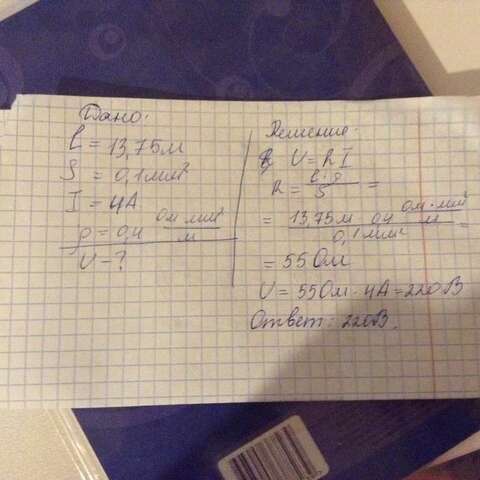 Дано:
l = 13,75м
S = 0,1мм²
I = 4А
ρ = 0,4 Ом·мм²/м
U - ?
Решение.
U = RI
R = l·ρ/S =
= 13,75м 0,4 Ом·мм²/м / 0,1мм² =
= 55 Ом
U = 55Ом · 4А = 220В
Ответ: 220В.